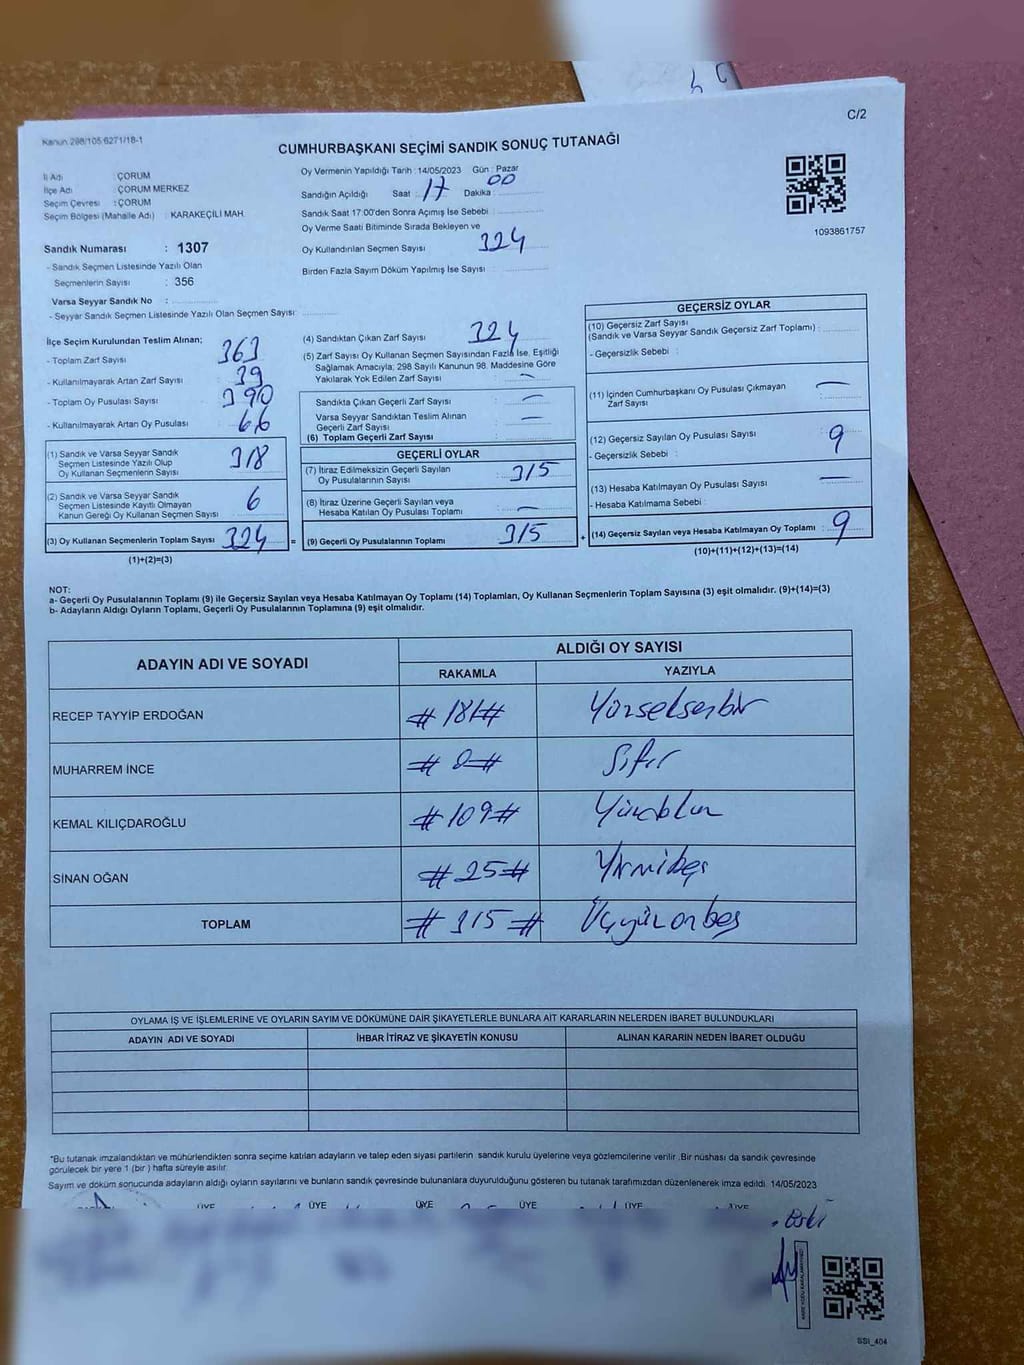 C/2
Kanun 298/105:6271/18-1
CUMHURBAŞKANI SEÇİMİ SANDIK SONUÇ TUTANAĞI
İl Adı : ÇORUM
İlçe Adı : ÇORUM MERKEZ
Seçim Çevresi : ÇORUM
Seçim Bölgesi (Mahalle Adı) : KARAKEÇİLİ MAH.
Sandık Numarası : 1307
- Sandık Seçmen Listesinde Yazılı Olan
Seçmenlerin Sayısı : 356
Varsa Seyyar Sandık No :
- Seyyar Sandık Seçmen Listesinde Yazılı Olan Seçmen Sayısı:
Oy Vermenin Yapıldığı Tarih : 14/05/2023 Gün : Pazar
Sandığın Açıldığı Saat : 17 Dakika : 00
Sandık Saat 17:00'den Sonra Açımış İse Sebebi :
Oy Verme Saati Bitiminde Sırada Bekleyen ve
Oy Kullandırılan Seçmen Sayısı 324
Birden Fazla Sayım Döküm Yapılmış İse Sayısı :
1093861757
İlçe Seçim Kurulundan Teslim Alınan;
- Toplam Zarf Sayısı 363
- Kullanılmayarak Artan Zarf Sayısı 39
- Toplam Oy Pusulası Sayısı 390
- Kullanılmayarak Artan Oy Pusulası 66
(1) Sandık ve Varsa Seyyar Sandık
Seçmen Listesinde Yazılı Olup
Oy Kullanan Seçmenlerin Sayısı 318
(2) Sandık ve Varsa Seyyar Sandık
Seçmen Listesinde Kayıtlı Olmayan
Kanun Gereği Oy Kullanan Seçmen Sayısı 6
(3) Oy Kullanan Seçmenlerin Toplam Sayısı 324 =
(1)+(2)=(3)
(4) Sandıktan Çıkan Zarf Sayısı 324
(5) Zarf Sayısı Oy Kullanan Seçmen Sayısından Fazla İse, Eşitliği
Sağlamak Amacıyla; 298 Sayılı Kanunun 98. Maddesine Göre
Yakılarak Yok Edilen Zarf Sayısı : —
Sandıkta Çıkan Geçerli Zarf Sayısı : —
Varsa Seyyar Sandıktan Teslim Alınan
Geçerli Zarf Sayısı : —
(6) Toplam Geçerli Zarf Sayısı :
GEÇERLİ OYLAR
(7) İtiraz Edilmeksizin Geçerli Sayılan
Oy Pusulalarının Sayısı : 315
(8) İtiraz Üzerine Geçerli Sayılan veya
Hesaba Katılan Oy Pusulası Toplamı : —
(9) Geçerli Oy Pusulalarının Toplamı : 315 +
GEÇERSİZ OYLAR
(10) Geçersiz Zarf Sayısı
(Sandık ve Varsa Seyyar Sandık Geçersiz Zarf Toplamı) :
- Geçersizlik Sebebi :
(11) İçinden Cumhurbaşkanı Oy Pusulası Çıkmayan
Zarf Sayısı : —
(12) Geçersiz Sayılan Oy Pusulası Sayısı : 9
- Geçersizlik Sebebi :
(13) Hesaba Katılmayan Oy Pusulası Sayısı : —
- Hesaba Katılmama Sebebi :
(14) Geçersiz Sayılan veya Hesaba Katılmayan Oy Toplamı : 9
(10)+(11)+(12)+(13)=(14)
NOT:
a- Geçerli Oy Pusulalarının Toplamı (9) ile Geçersiz Sayılan veya Hesaba Katılmayan Oy Toplamı (14) Toplamları, Oy Kullanan Seçmenlerin Toplam Sayısına (3) eşit olmalıdır. (9)+(14)=(3)
b- Adayların Aldığı Oyların Toplamı, Geçerli Oy Pusulalarının Toplamına (9) eşit olmalıdır.
ADAYIN ADI VE SOYADI ALDIĞI OY SAYISI
RAKAMLA YAZIYLA
RECEP TAYYİP ERDOĞAN #181# Yüzseksenbir
MUHARREM İNCE #0# Sıfır
KEMAL KILIÇDAROĞLU #109# Yüzdokuz
SİNAN OĞAN #25# Yirmibeş
TOPLAM #315# Üçyüzonbeş
OYLAMA İŞ VE İŞLEMLERİNE VE OYLARIN SAYIM VE DÖKÜMÜNE DAİR ŞİKAYETLERLE BUNLARA AİT KARARLARIN NELERDEN İBARET BULUNDUKLARI
ADAYIN ADI VE SOYADI İHBAR İTİRAZ VE ŞİKAYETİN KONUSU ALINAN KARARIN NEDEN İBARET OLDUĞU
*Bu tutanak imzalandıktan ve mühürlendikten sonra seçime katılan adayların ve talep eden siyasi partilerin sandık kurulu üyelerine veya gözlemcilerine verilir .Bir nüshası da sandık çevresinde
görülecek bir yere 1 (bir ) hafta süreyle asılır.
Sayım ve döküm sonucunda adayların aldığı oyların sayılarını ve bunların sandık çevresinde bulunanlara duyurulduğunu gösteren bu tutanak tarafımızdan düzenlenerek imza edildi. 14/05/2023
ÜYE ÜYE ÜYE ÜYE ÜYE ÜYE
SSİ_404